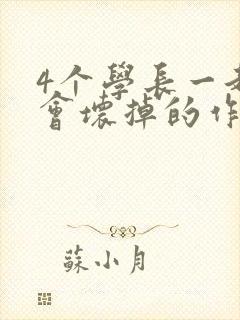 4个學長一
會壞掉的作
蘇小月